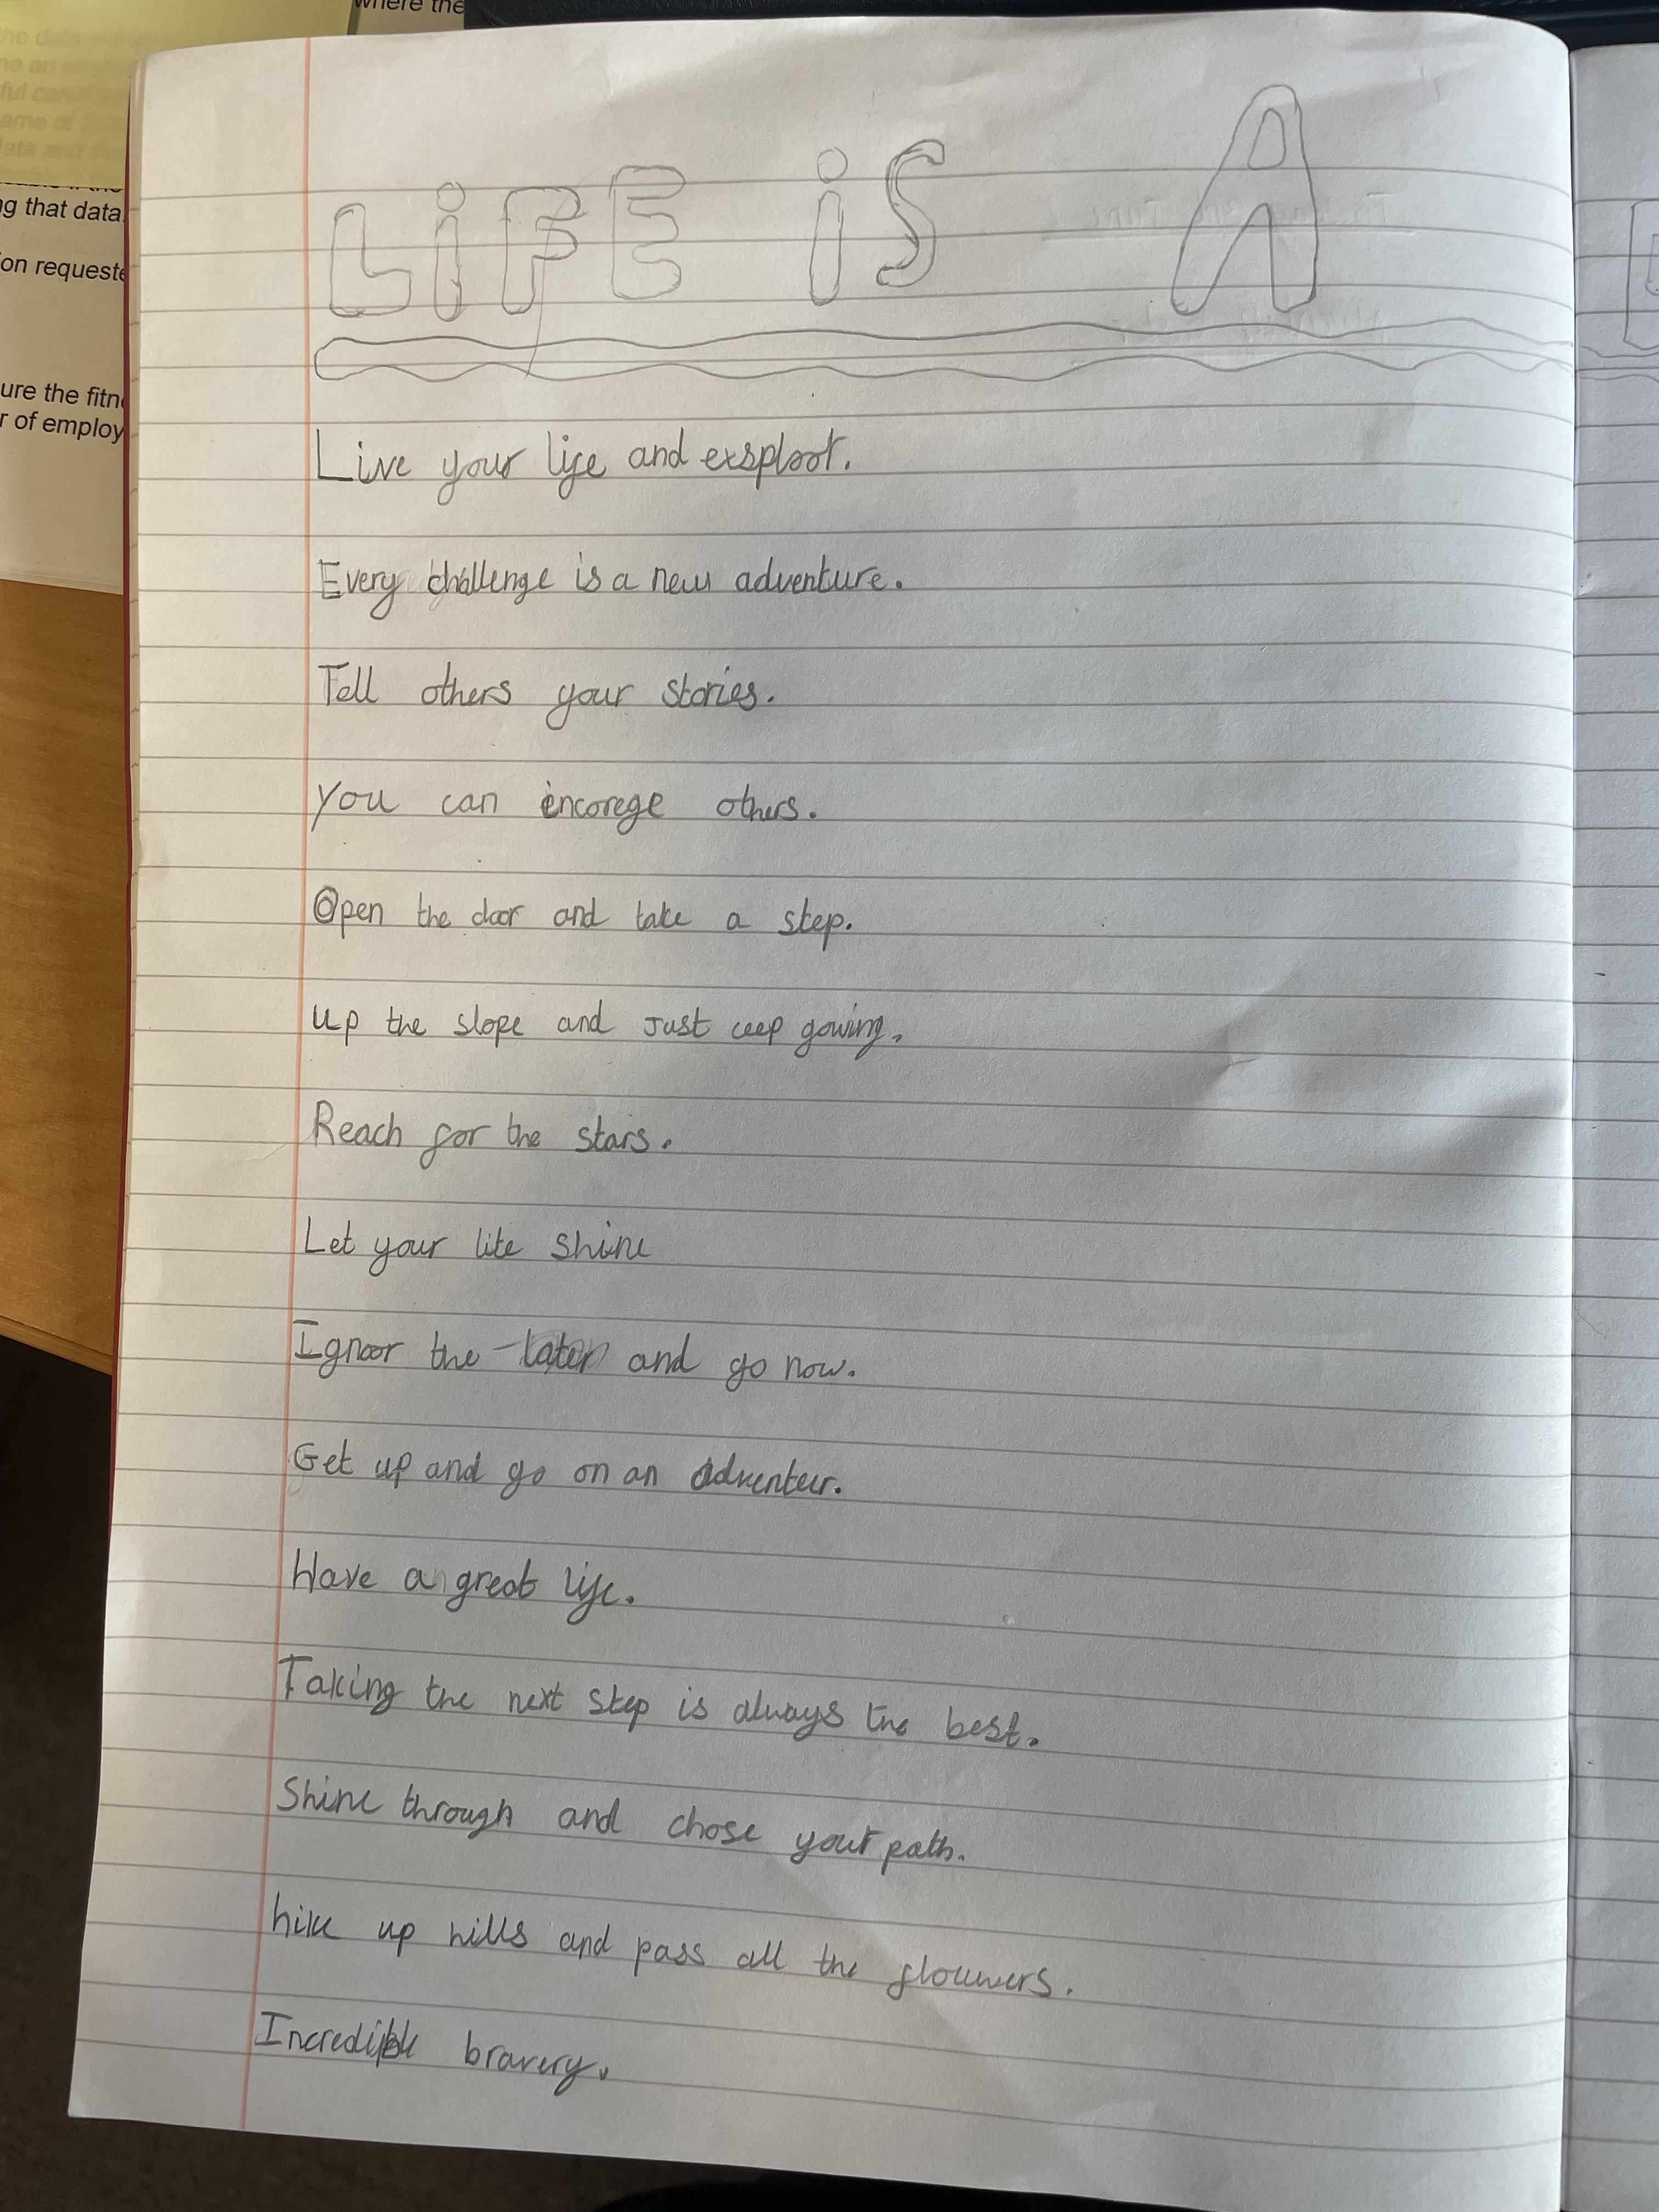 where the
ng that data
on requeste
ure the fitn
r of employ
LiFE iS A
Live your life and exsploor.
Every challenge is a new adventure.
Tell others your stories.
You can encorege others.
Open the door and take a step.
Up the slope and just ceep gowing.
Reach for the stars.
Let your lite shine
Ignoor the later and go now.
Get up and go on an adventeur.
Have a great life.
Taking the next step is always the best.
Shine through and chose your path.
hike up hills and pass all the flouwers.
Incredible bravery.